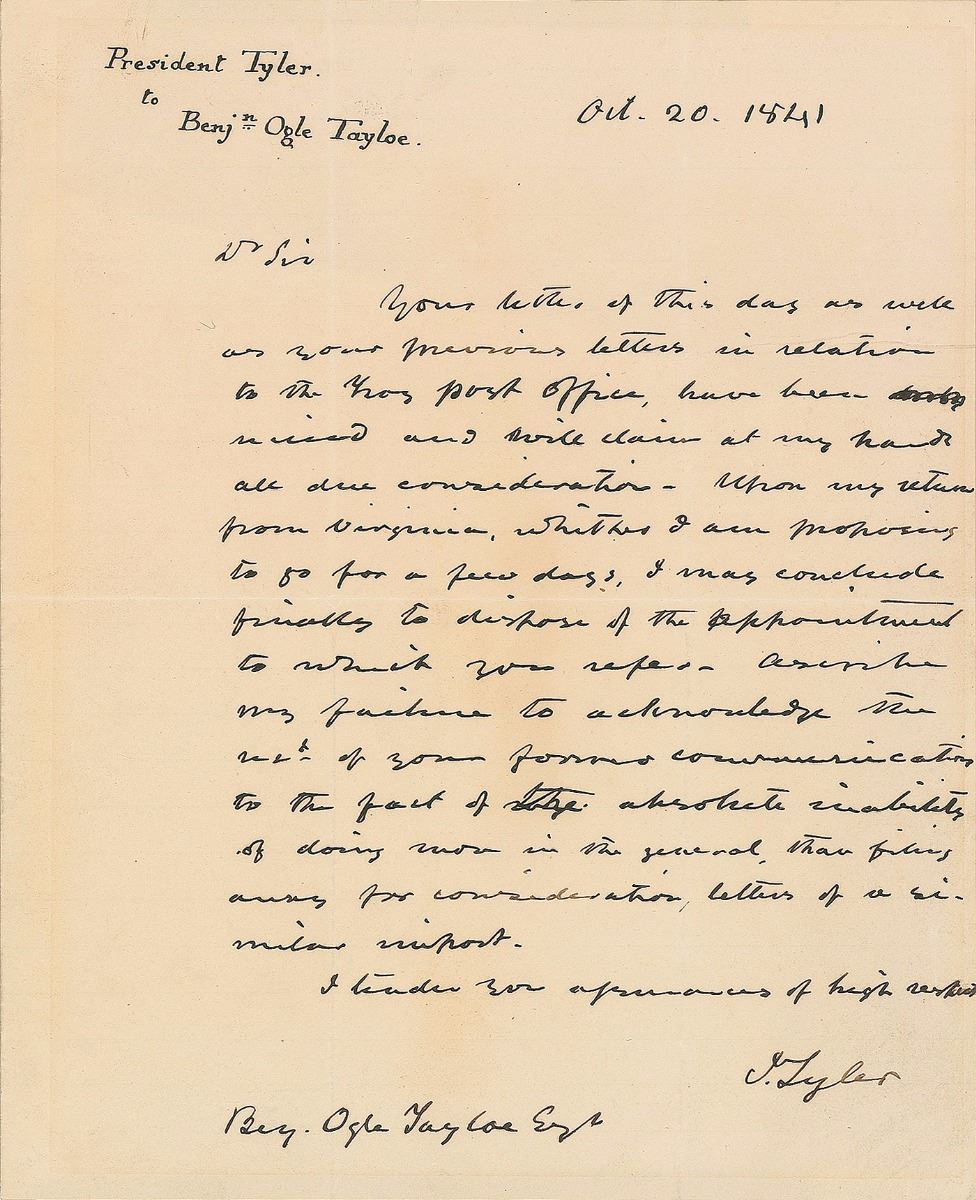 President Tyler.
to
Benjn Ogle Tayloe.
Oct. 20. 1841
Dr Sir
Your letter of this day as well
as your previous letters in relation
to the Troy post office, have been
received and will claim at my hands
all due consideration - Upon my return
from Virginia, whither I am proposing
to go for a few days, I may conclude
finally to dispose of the appointment
to which you refer - Ascribe
my failure to acknowledge the
recd. of your former communication
to the fact of the absolute inability
of doing more in the general, than filing
away for consideration, letters of a si-
milar import.
I tender you assurances of high respect
J. Tyler
Benj. Ogle Tayloe Esqr